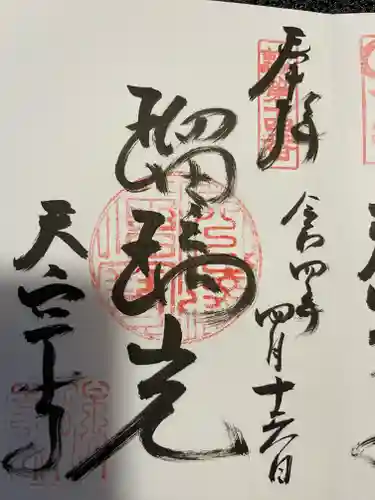 奉拝
令和四年四月十六日
瑠璃光
天宁寺